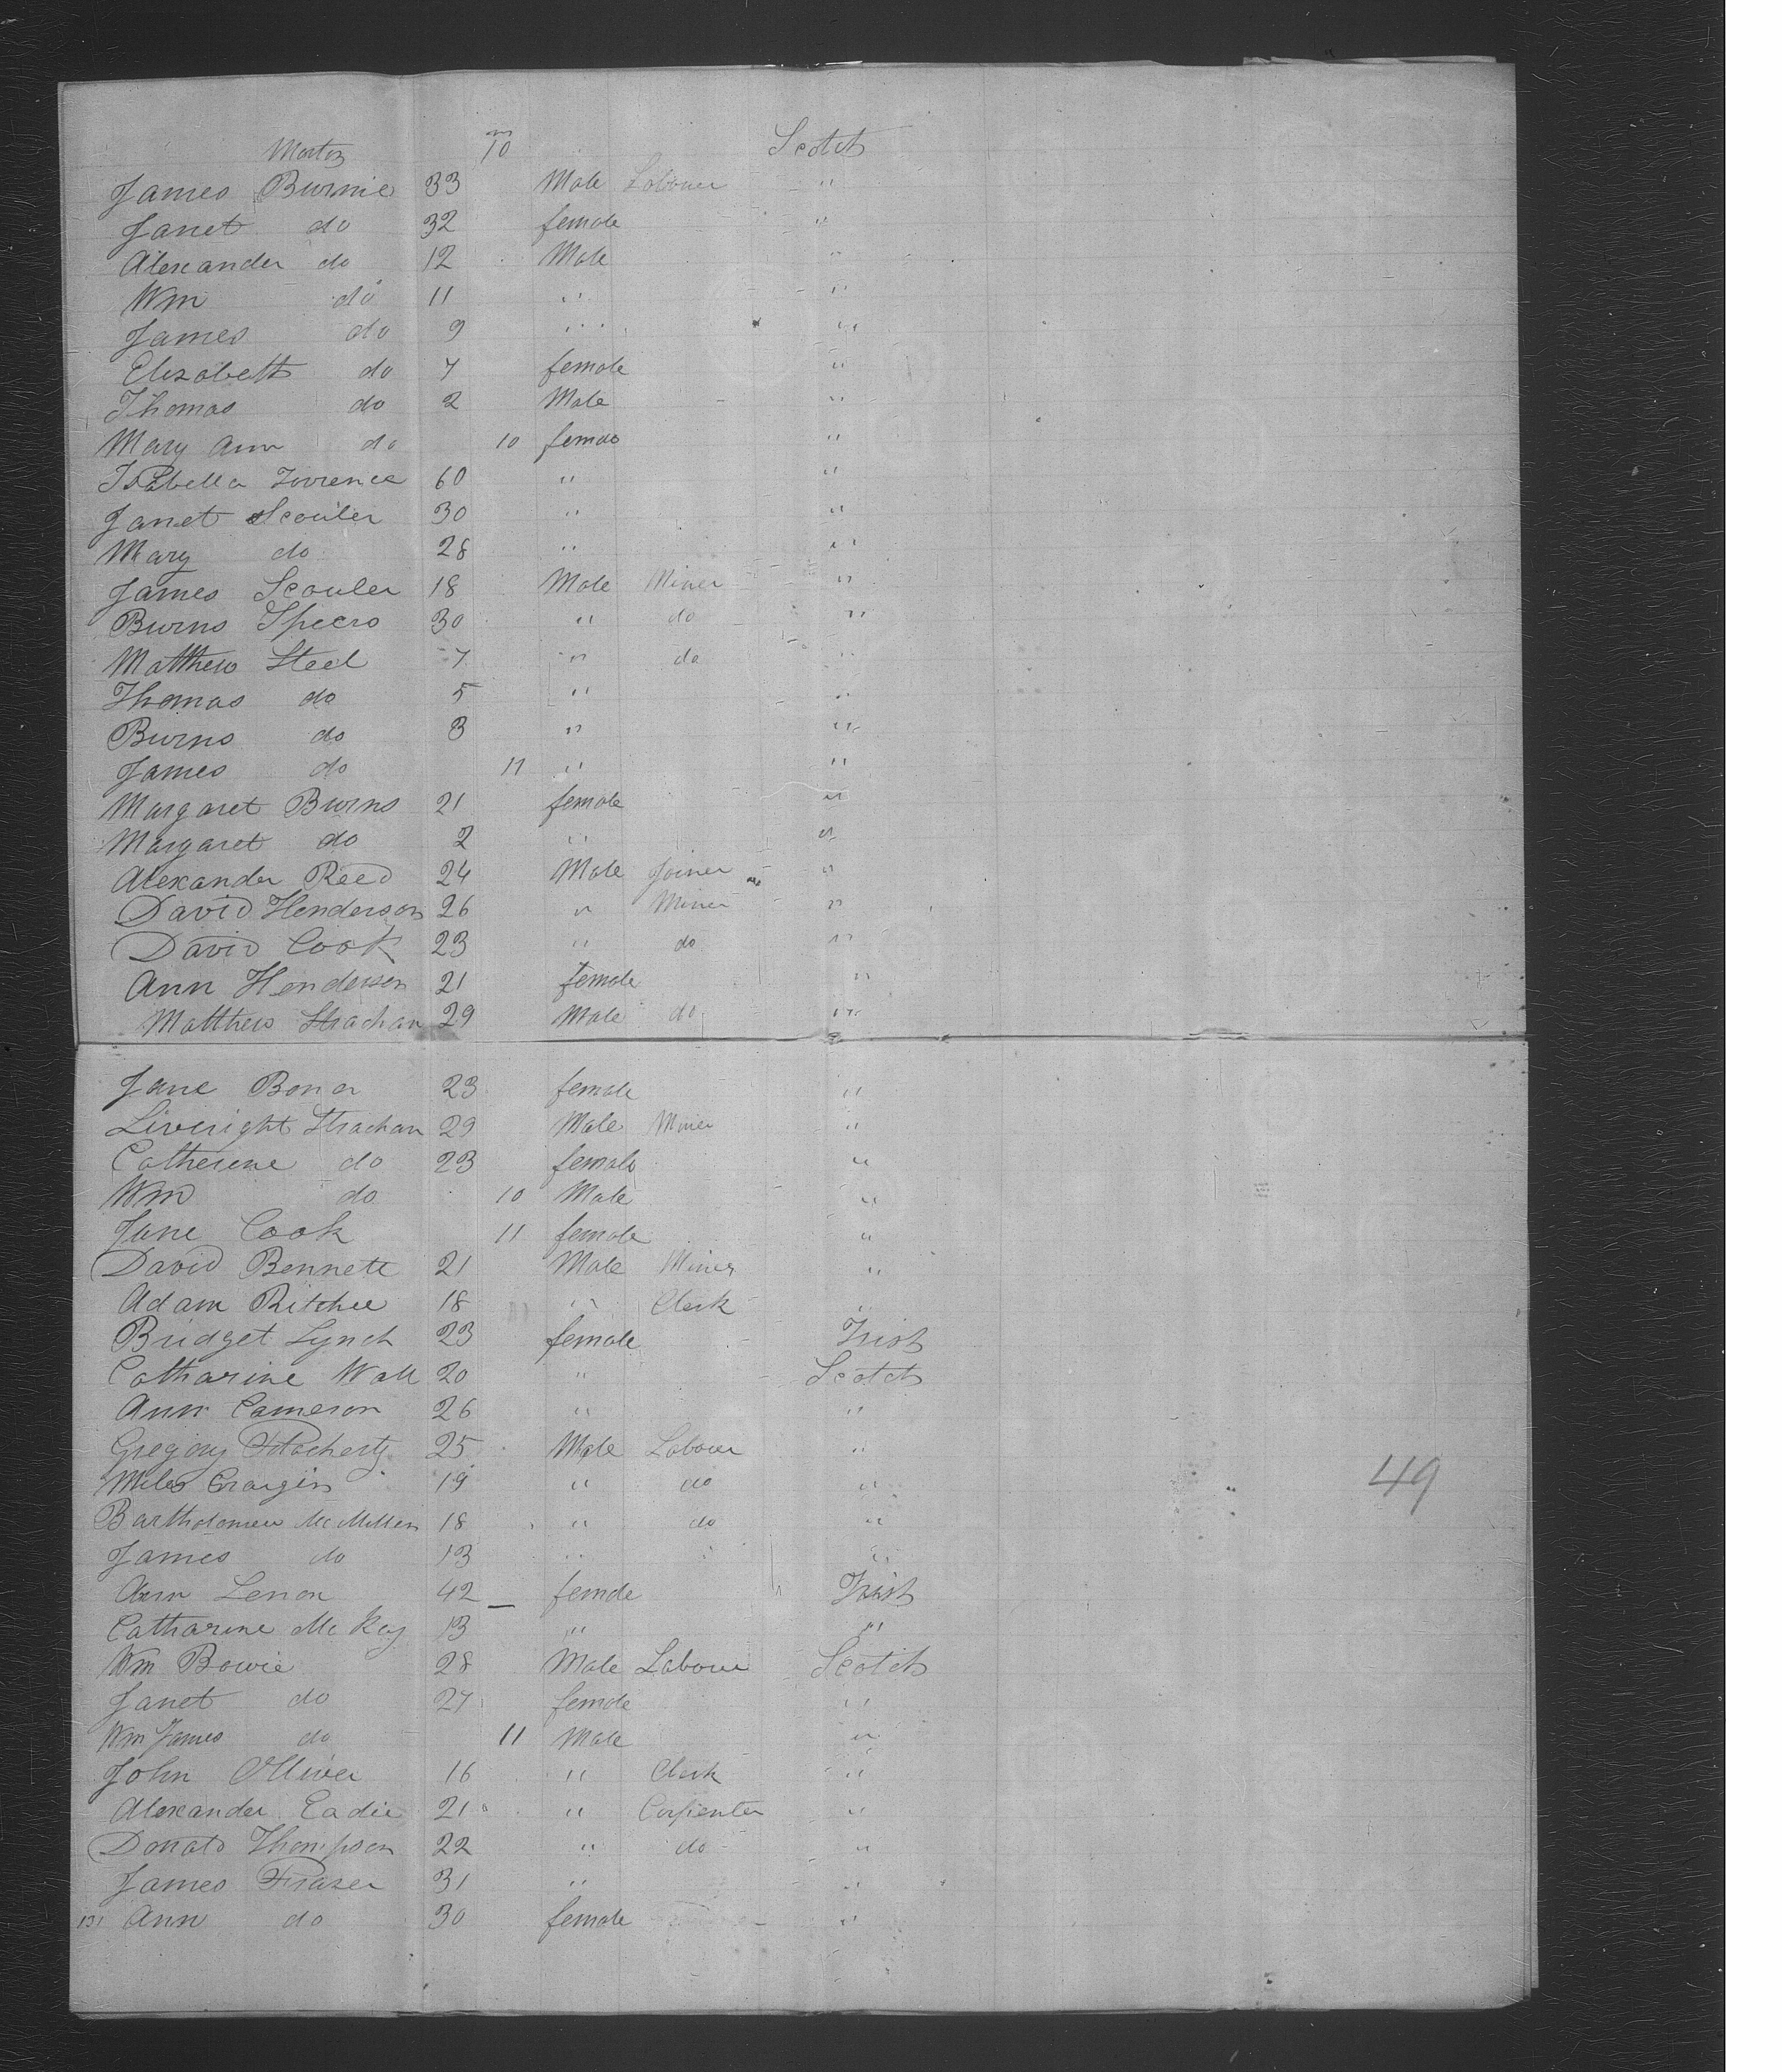 Morton m 10 Scotch
James Burnie 33 Male Labouer "
Janet do 32 female "
Alexander do 12 Male "
Wm do 11 " "
James do 9 " "
Elizabeth do 7 female "
Thomas do 2 Male "
Mary Ann do 10 female "
Isabella Torrence 60 " "
Janet Scouler 30 " "
Mary do 28 " "
James Scouler 18 Male Miner "
Burns Speers 30 " do "
Matthew Steel 7 " do "
Thomas do 5 " "
Burns do 3 " "
James do 11 " "
Margaret Burns 21 female "
Margaret do 2 " "
Alexander Reed 24 Male Joiner "
David Henderson 26 " Miner "
David Cook 23 " do "
Ann Henderson 21 female "
Matthew Strachan 29 Male do "
Jane Boner 23 female "
Liveright Strachan 29 Male Miner "
Catherine do 23 female "
Wm do 10 Male "
Jane Cook 11 female "
David Bennett 21 Male Miner "
Adam Ritchie 18 " Clerk "
Bridget Lynch 23 female Irish
Catharine Wall 20 " Scotch
Ann Cameron 26 " "
Gregory 25 Male Labouer "
Miles Cragin 19 " do "
Bartholomew McMillen 18 " do "
James do 13 " "
Ann Lenon 42 female Irish
Catharine McKay 13 " "
Wm Bowie 28 Male Laboure Scotch
Janet do 27 female "
Wm James do 11 Male "
John Olliver 16 " Clerk "
Alexander Eadie 21 " Carpenter "
Donald Thompson 22 " do "
James Fraser 31 " "
131 Ann do 30 female "
49